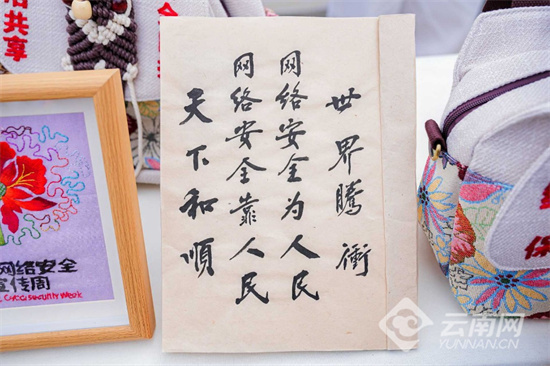 共享
世界騰衝
网络安全为人民
网络安全靠人民
天下和順
网络安全
宣传周
Cybersecurity Week
保
云南网
YUNNAN.CN